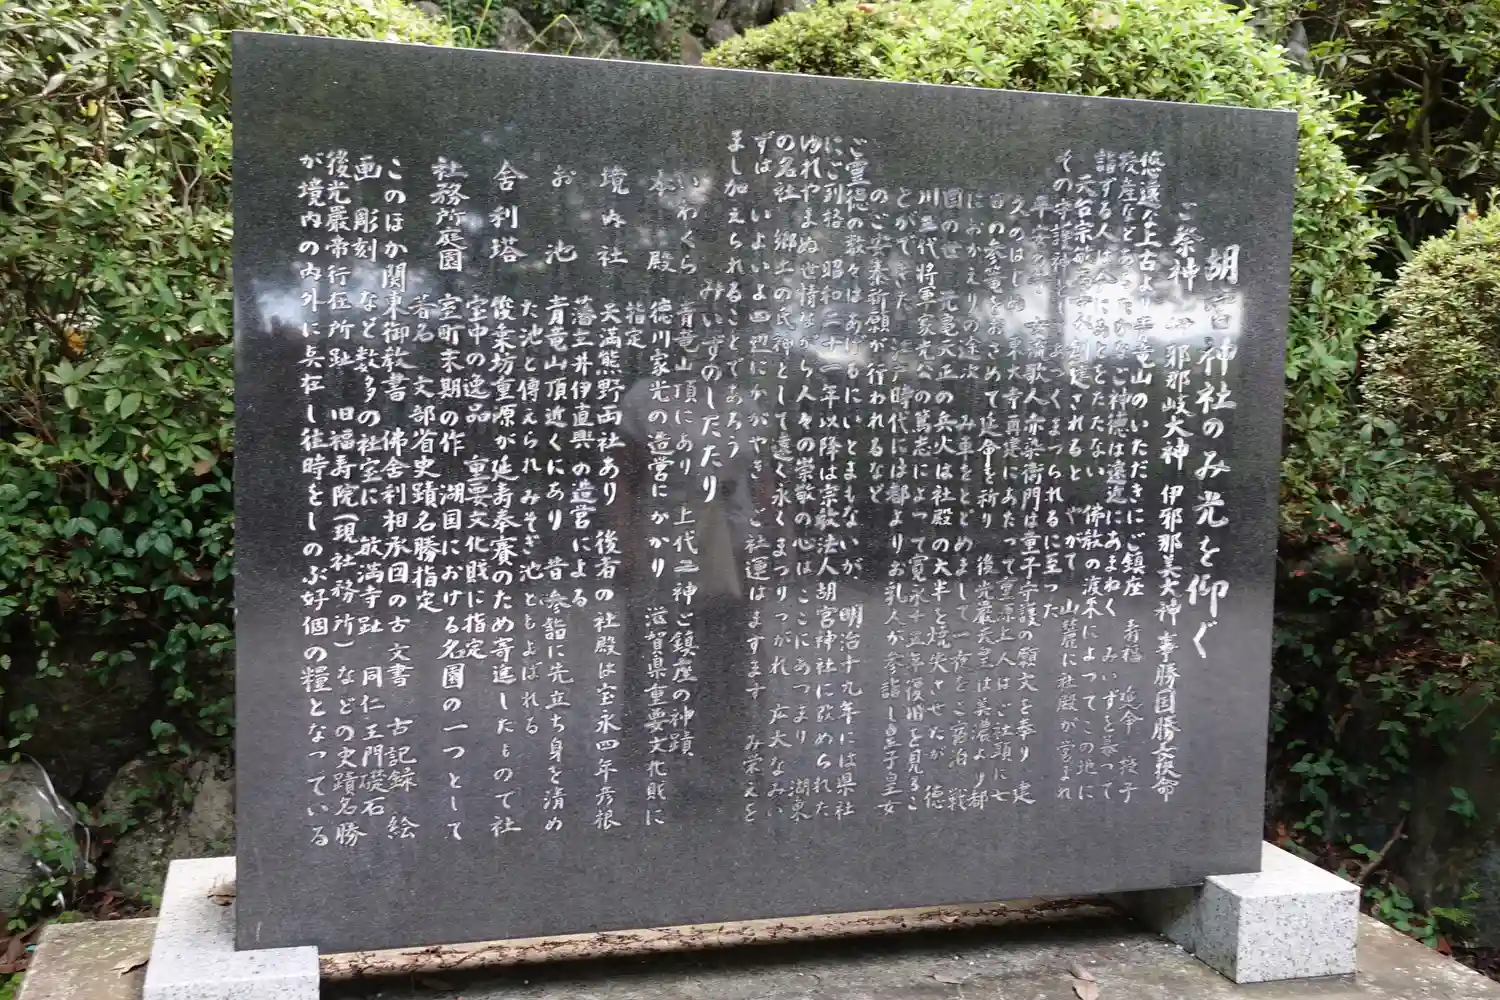 胡宮神社のみ光を仰ぐ
ご祭神 伊邪那岐大神 伊邪那美大神 事勝国勝長狭命
悠遠な上古より青竜山のいただきにご鎮座 寿福 延命 授子
授産などあらたかなご神徳は遠近にあまねく みいずを慕って
詣ずる人は今にあとをたたない 佛教の渡来によってこの地に
天台宗敏満寺が創建されると やがて 山麓に社殿が営まれ
その守護神として あつくまつられるに至った
平安 女流歌人赤染衛門は童子守護の願文を奉り 建
久のはじめ 東大寺再建にあたって重源上人はご社頭に七
日の参篭をおさめて延命を祈り 後光厳天皇は美濃より都
におかえりの途次 み車をとどめまして一夜をご宿泊 戦
国の世 元亀天正の兵火は社殿の大半を焼失させたが 徳
川三代将軍家光公の篤志によって寛永十五年復旧を見るこ
とができた 江戸時代には都よりお乳人が参詣し皇子皇女
のご安泰祈願が行われるなど
ご霊徳の数々はあげるにいとまもないが、明治十九年には県社
にご列格 昭和二十一年以降は宗教法人胡宮神社に改められた
ゆれやまぬ世情ながら人々の崇敬の心はここにあつまり 湖東
の名社 郷土の氏神として遠く永くまつりつがれ 広大なみい
ずは いよいよ四辺にかがやき ご社運はますます み栄えを
まし加えられることであろう
みいずのしたたり
いわくら 青竜山頂にあり 上代二神ご鎮座の神蹟
本殿 徳川家光の造営にかかり 滋賀県重要文化財に
指定
境内社 天満熊野両社あり 後者の社殿は宝永四年彦根
藩主井伊直興の造営による
お池 青竜山頂近くにあり 昔 参詣に先立ち身を清め
た池と傳えられ みそぎ池ともよばれる
舎利塔 俊乗坊重源が延寿奉賽のため寄進したもので社
宝中の逸品 重要文化財に指定
社務所庭園 室町末期の作 湖国における名園の一つとして
著名 文部省史蹟名勝指定
このほか関東御教書 佛舎利相承図の古文書 古記録 絵
画 彫刻 など数多の社宝に 敏満寺趾 同仁王門礎石
後光厳帝行在所趾 旧福寿院(現社務所) などの史蹟名勝
が境内の内外に点在し往時をしのぶ好個の糧となっている